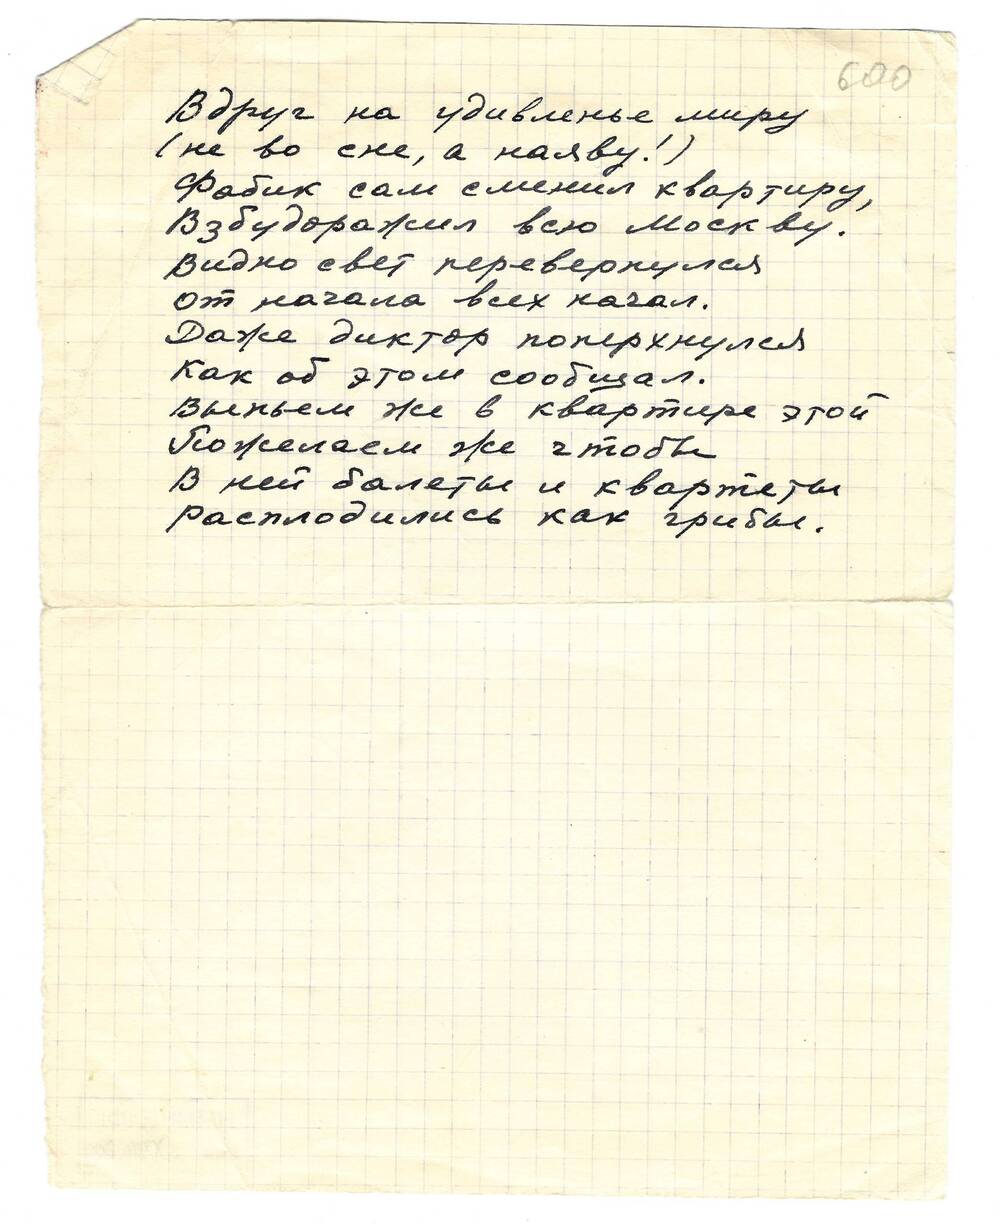 600
Вдруг на удивленье миру
(не во сне, а наяву!)
Фабик сам сменил квартиру,
Взбудоражил всю Москву.
Видно свет перевернулся
от начала всех начал.
Даже диктор поперхнулся
Как об этом сообщал.
Выпьем же в квартире этой
Пожелаем же чтобы
В ней балеты и квартеты
Расплодились как грибы.